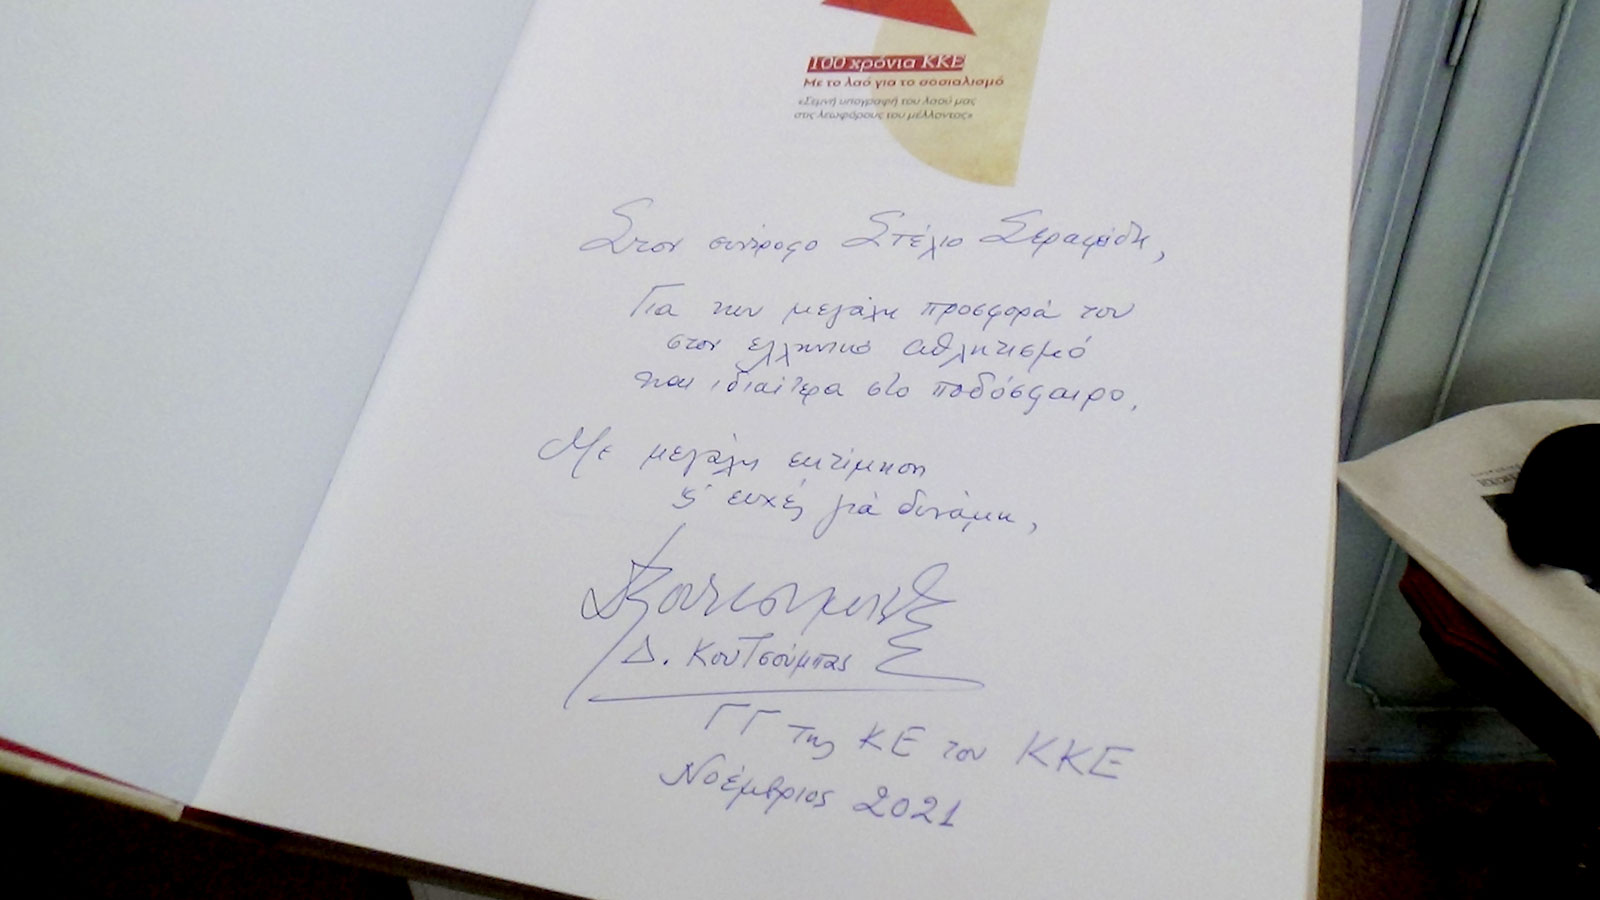 100 χρόνια ΚΚΕ
Με το λαό για το σοσιαλισμό
«Σεμνή υπογραφή του λαού μας
στις λεωφόρους του μέλλοντος»
Στον σύντροφο Στέλιο Σεραφείδη,
Για την μεγάλη προσφορά του
στον ελληνικό αθλητισμό
και ιδιαίτερα στο ποδόσφαιρο.
Με μεγάλη εκτίμηση
ϗ ευχές για δύναμη,
Δ. Κουτσούμπας
ΓΓ της ΚΕ του ΚΚΕ
Νοέμβριος 2021